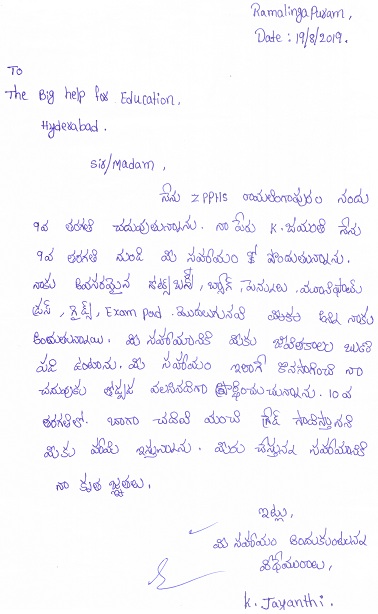 Ramalinga Puram,
Date : 19/8/2019.
To
The Big help for Education,
Hyderabad.
Sir/Madam,
నేను ZPPHS రామలింగాపురం నందు
9వ తరగతి చదువుతున్నాను. నా పేరు K. జయంతి నేను
9వ తరగతి నుండి మీ సహాయం పొందుతున్నాను.
నాకు అవసరమైన నోట్స్ బుక్స్, బ్యాగ్, పెన్నులు,
Exam Pad. మొదలగునవి అన్ని నాకు
అందుతున్నాయి. మీ సహాయానికి మీకు జీవితకాలం బుణ
పడి ఉంటాను. మీ సహాయం ఇలాగే కొనసాగించి నా
చదువుకు తోడ్పడ వలసినదిగా ప్రార్థించుచున్నాను. 10వ
తరగతిలో. బాగా చదివి మంచి గ్రేడ్ సాధిస్తానని
మీకు హామి ఇస్తున్నాను. మీరు చేస్తున్న సహాయానికి
నా కృతజ్ఞతలు.
ఇట్లు,
మీ సహాయం అందుకుంటున్న
K. Jayanthi.